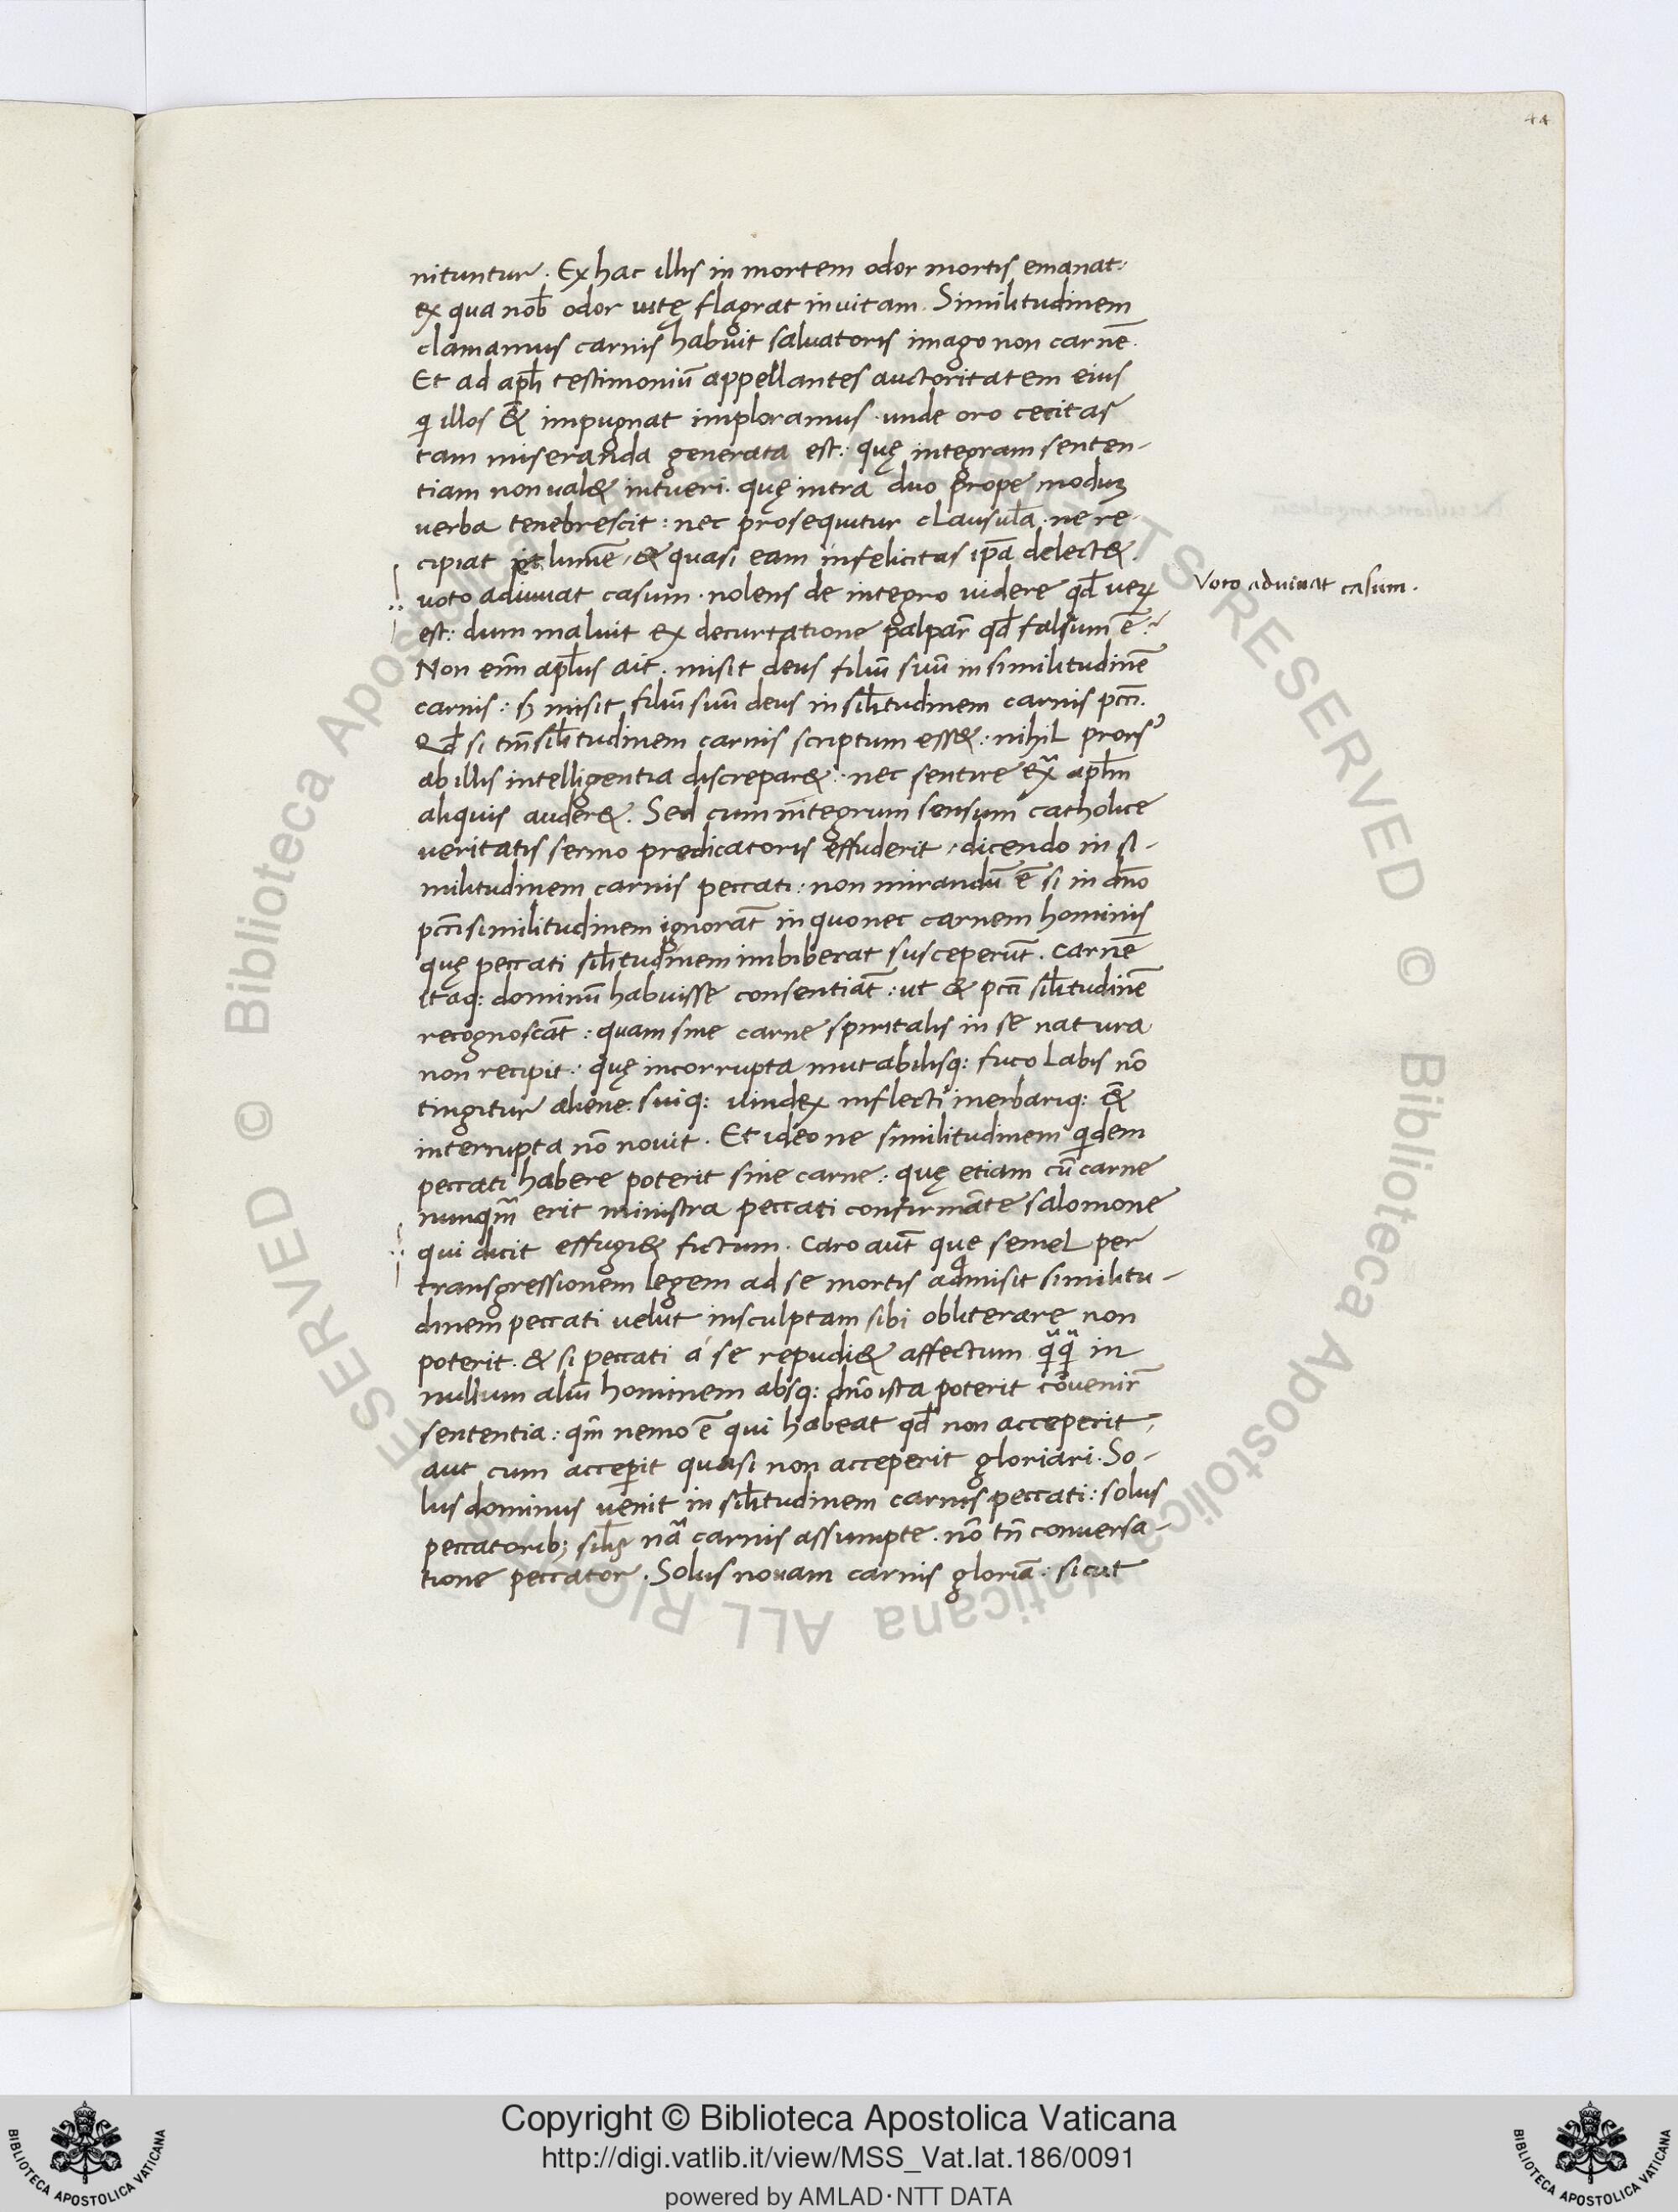 44
nituntur. Ex hac illis in mortem odor mortis emanat:
ex qua nob̄ odor uitę flagrat in vitam. Similitudinem
clamamus carnis habuit saluatoris imago non carnē.
Et ad apłi testimoniū appellantes auctoritatem eius
qi illos &̄ impugnat imploramus. unde oro cecitas
tam miseranda generata est: quę integram senten-
tiam non ual& intueri. quę intra duo prope moduꝫ
verba tenebrescit: nec prosequitur clausula. ne re-
cipiat lumē, & quasi eam infelicitas ip̄a delect&.
voto adiuuat casum. nolens de integro uidere qd̄ ueꝝ
Voto adviuat casum.
est: dum maluit ex decurtatione palpar̄ qd̄ falsum ē?
Non enī apłus ait. misit deus filiū suū in similitudinē
carnis: sꝫ misit filiū suū deus in siłitudinem carnis pccī.
Qd̄ si tm̄ siłitudinem carnis scriptum ess&: nihil prorsꝰ
ab illis intelligentia discrepar&: nec sentire ex̄ apłm
aliquis auder&. Sed cum integrum sensum catholice
veritatis sermo predicatoris effuderit, dicendo in si-
militudinem carnis peccati: non mirandū ē si in dn̄o
pccī similitudinem ignorāt in quo nec carnem hominis
quę peccati siłitudinem imbiberat susceperūt. Carnē
itaq: dominū habuisse consentiāt: ut & pccī siłitudinē
recognoscāt: quam sine carne spiritalis in se natura
non recipit: quę incorrupta mutabilisq: fuco labis nō
tingitur aliene. suiq: uindex inflecti inerbariq: &̄
interrupta nō novit. Et ideo ne similitudinem qidem
peccati habere poterit sine carne: quę etiam cū carne
nunqm̄ erit ministra peccati confirmāte salomone
qui dicit effugi& fictum. Caro aūt que semel per
transgressionem legem ad se mortis admisit similitu-
dinem peccati velut insculptam sibi obliterare non
poterit. & si peccati á se repudi& affectum. qͣqͣ in
nullum aliū hominem absq: dn̄o ista poterit cōvenir̄
sententia: qm̄ nemo ē qui habeat qd̄ non acceperit,
aut cum acceperit quasi non acceperit gloriari. So-
lus dominus venit in siłitudinem carnis peccati: solus
peccatoribꝫ siłis nā carnis assumpte. nō tn̄ conversa-
tione peccator. Solus novam carnis gloriā: sicut
Copyright © Biblioteca Apostolica Vaticana
http://digi.vatlib.it/view/MSS_Vat.lat.186/0091
powered by AMLAD·NTT DATA